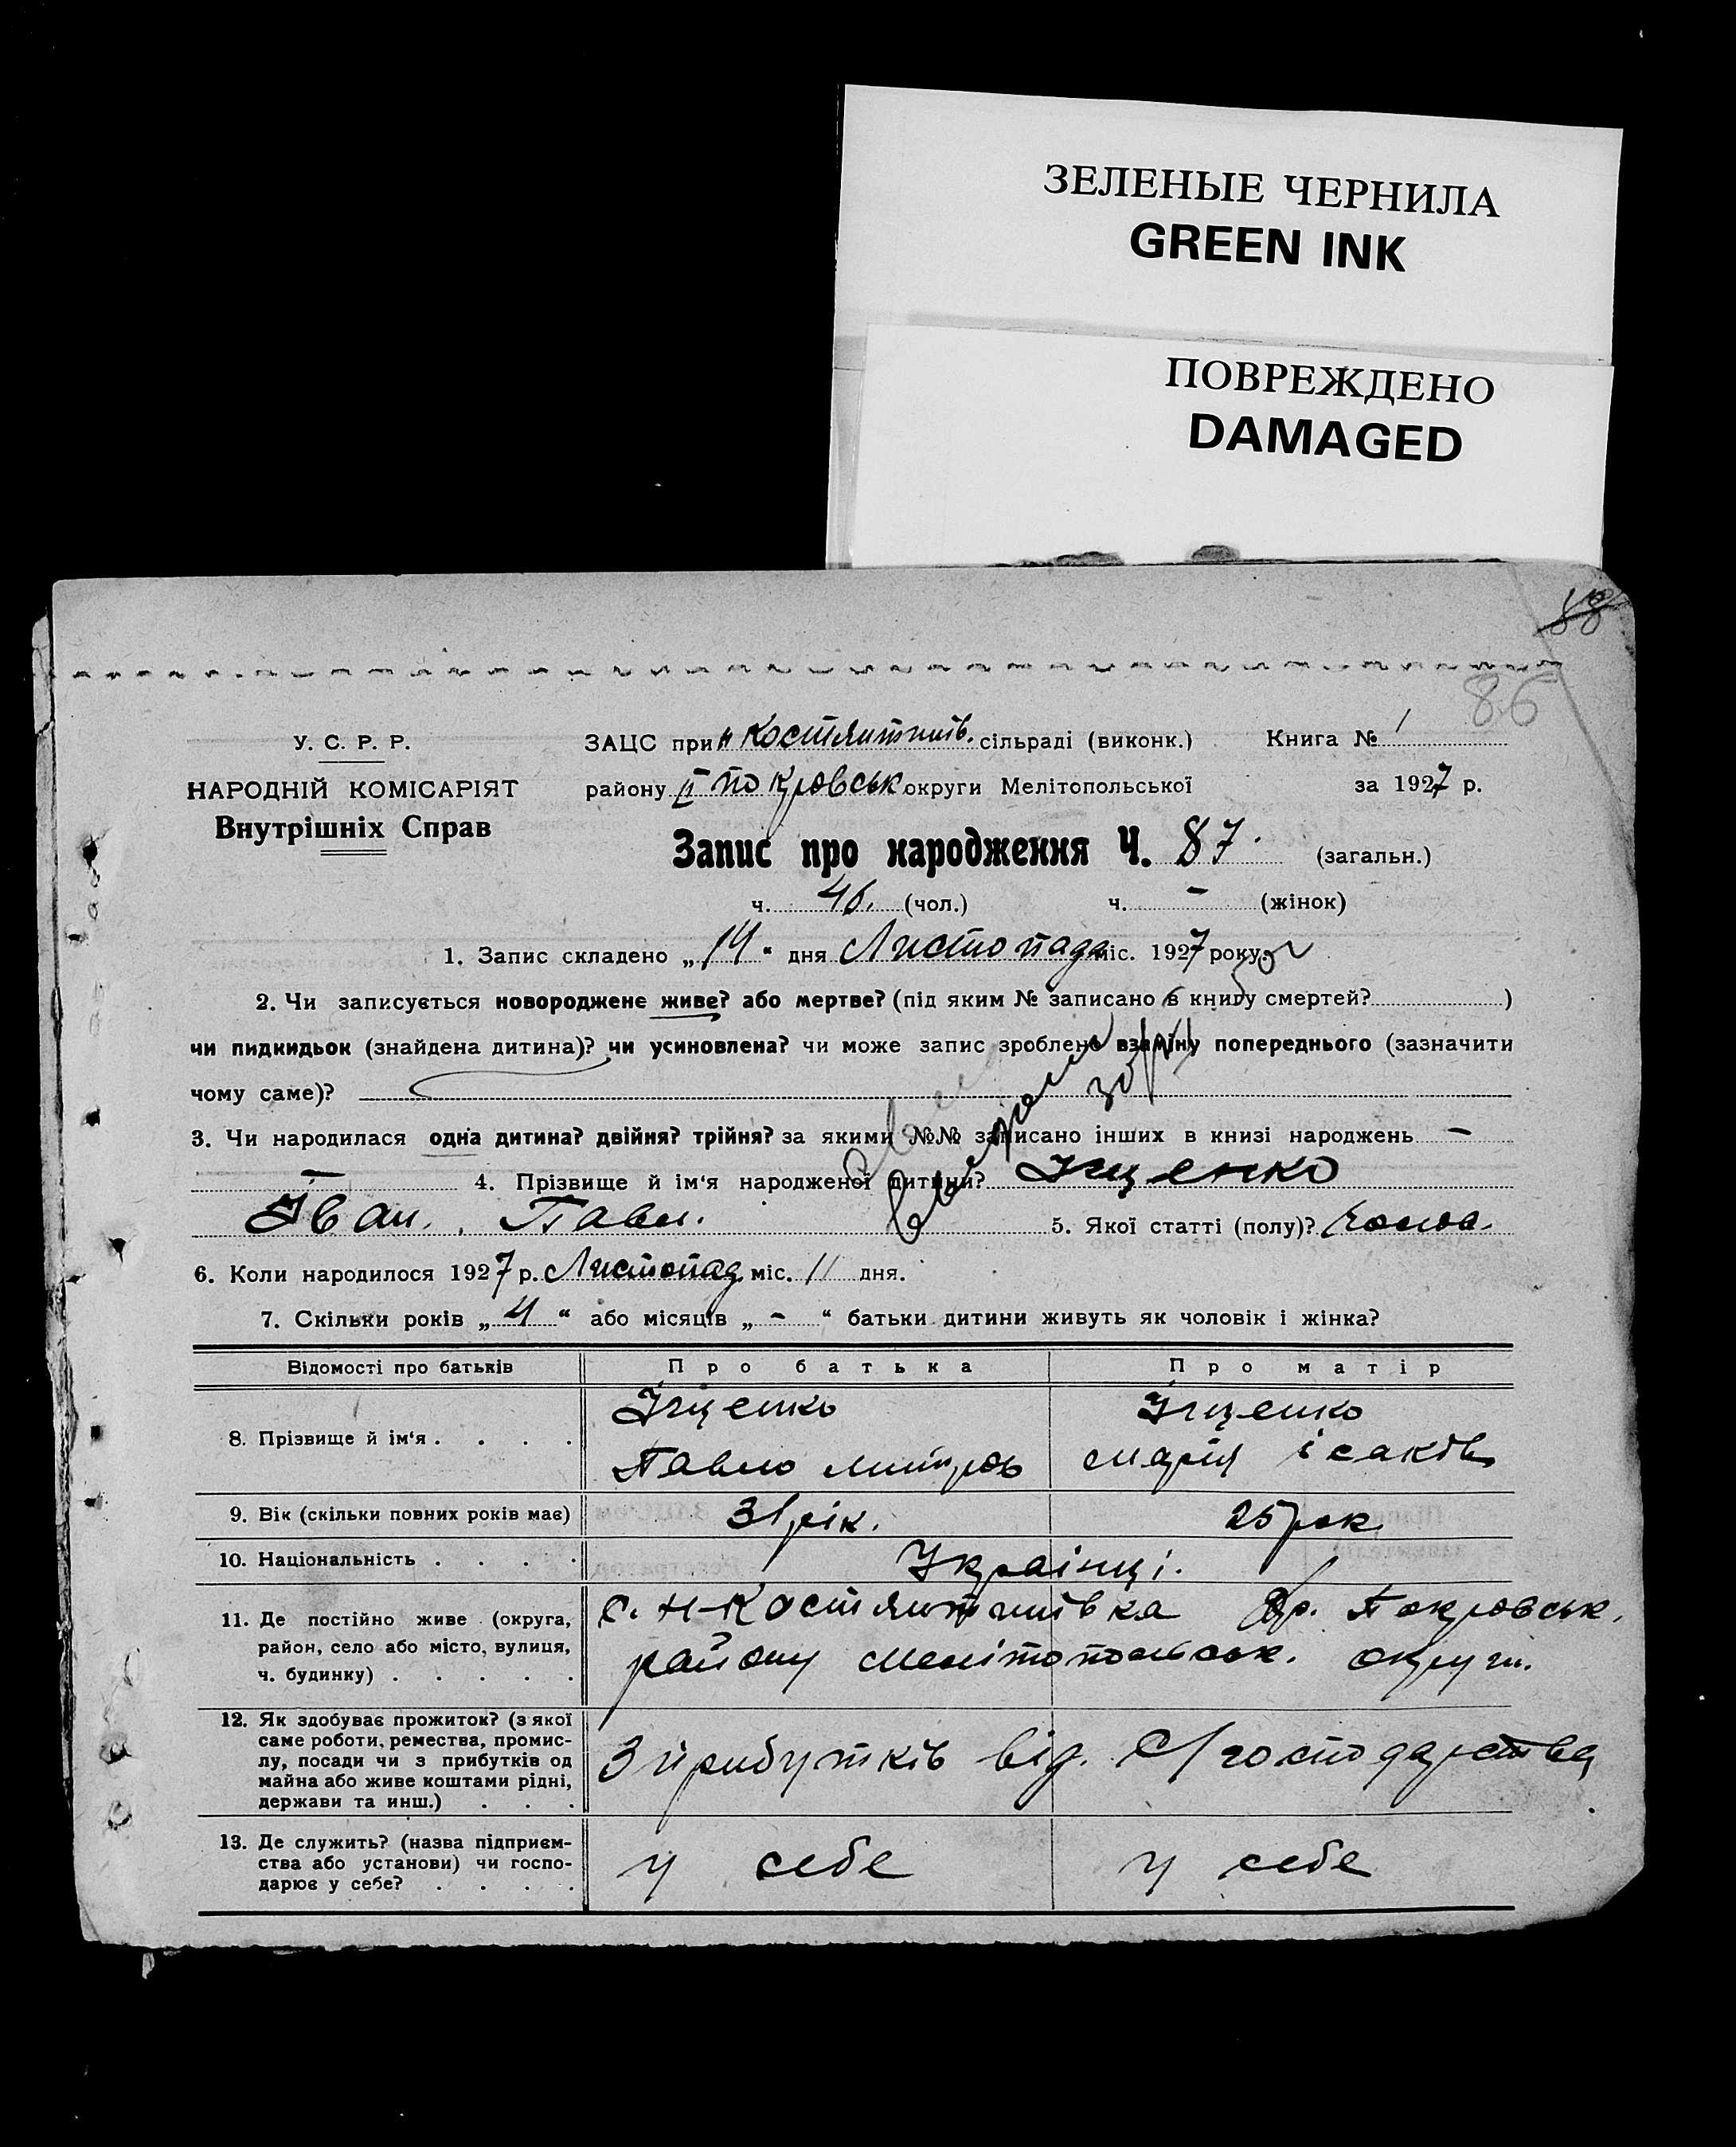 ЗЕЛЕНЫЕ ЧЕРНИЛА
GREEN INK
ПОВРЕЖДЕНО
DAMAGED
88
86
У. С. Р. Р.
НАРОДНІЙ КОМІСАРІЯТ
Внутрішніх Справ
ЗАЦС при сільраді (виконк.) Книга № 1
району Покровськ округи Мелітопольської за 1927 р.
Запис про народження Ч. 87. (загальн.)
ч. 46. (чол.) ч. – (жінок)
1. Запис складено „14“ дня Листопада міс. 1927 року
2. Чи записується новороджене живе? або мертве? (під яким № записано в книгу смертей? )
чи пидкидьок (знайдена дитина)? чи усиновлена? чи може запис зроблено взаміну попереднього (зазначити
чому саме)?
3. Чи народилася одна дитина? двійня? трійня? за якими №№ записано інших в книзі народжень –
– 4. Прізвище й ім‘я народженої дитини? Іщенко
Іван. Павл. 5. Якої статті (полу)?
6. Коли народилося 1927 р. Листопад міс. 11 дня.
7. Скільки років „4“ або місяців „-“ батьки дитини живуть як чоловік і жінка?
Відомості про батьків Про батька Про матір
8. Прізвище й ім‘я . . . . Іщенко Павло Митров Іщенко Марія Ісаків
9. Вік (скільки повних років має) 31 рік. 25 рок
10. Національність . . . . Українці.
11. Де постійно живе (округа, район, село або місто, вулиця, ч. будинку) . . . . . с. Н-Костянтинівка Покровськ. району Мелітопольськ. округи.
12. Як здобуває прожиток? (з якої саме роботи, ремества, промислу, посади чи з прибутків од майна або живе коштами рідні, держави та инш.) . . . З прибутків від. С/господарства
13. Де служить? (назва підприємства або установи) чи господарює у себе? . . . . у себе у себе